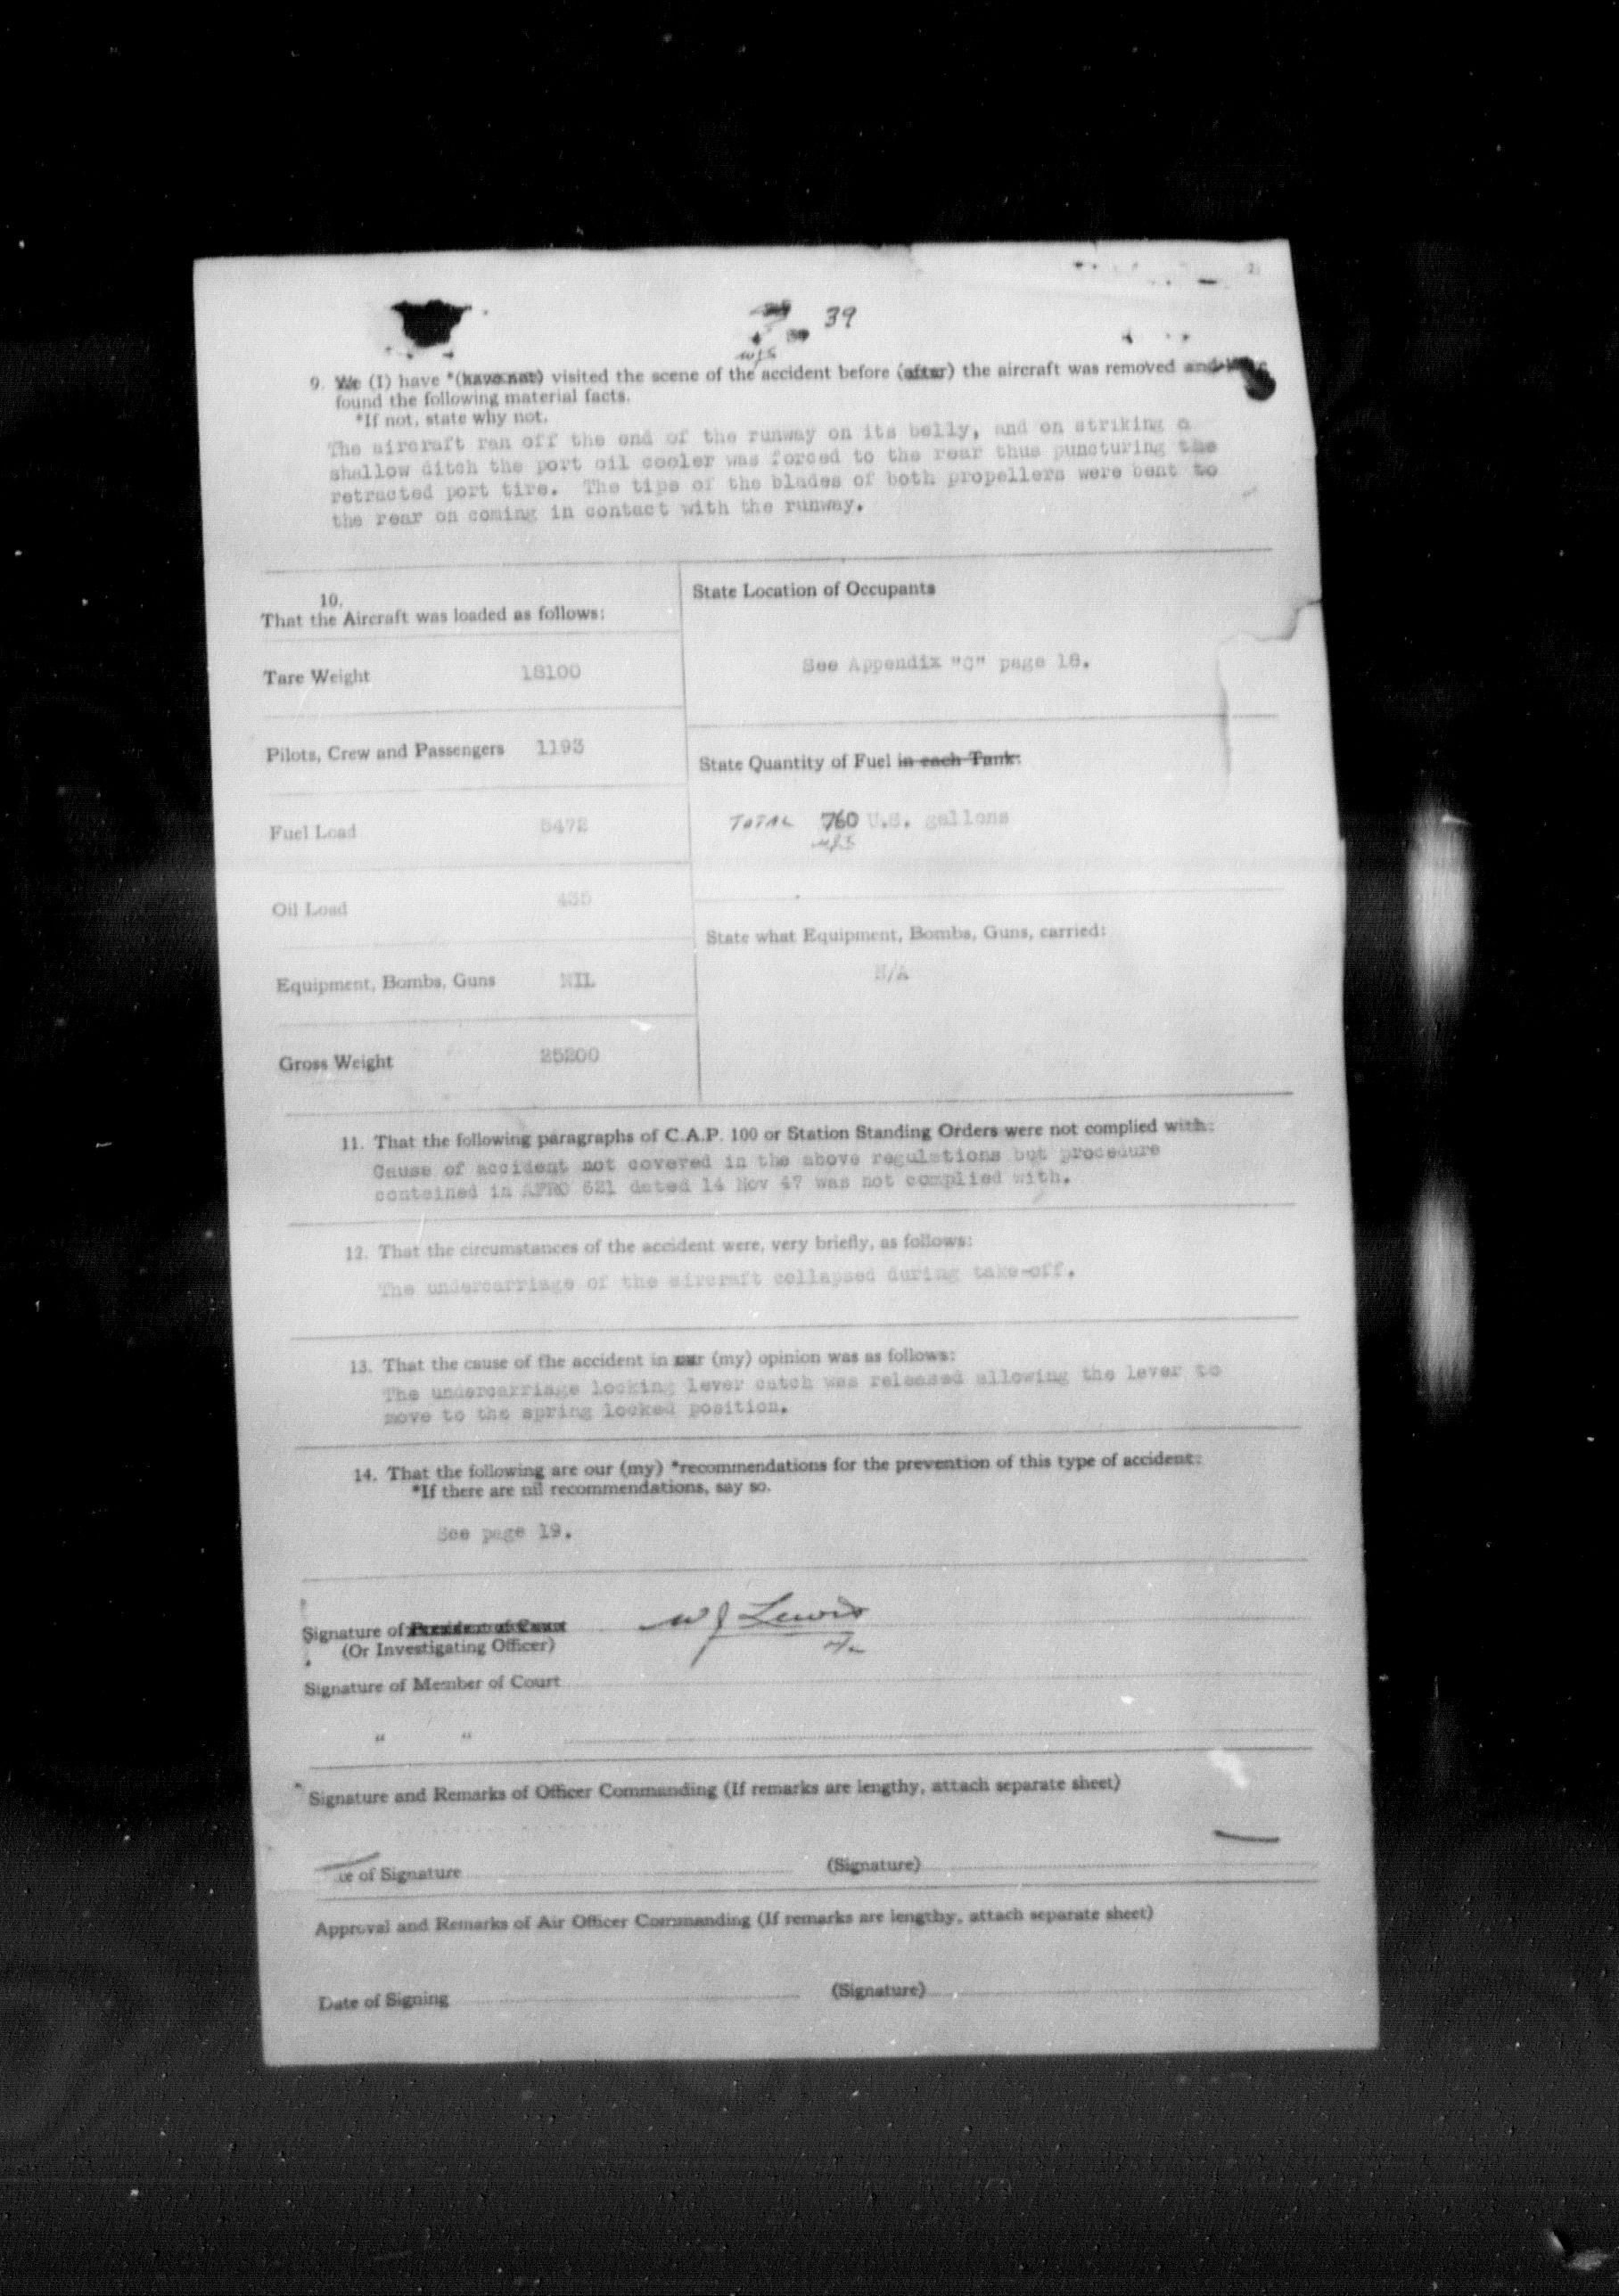 39
wfs
9. We (I) have *(have not) visited the scene of the accident before (after) the aircraft was removed and
found the following material facts.
*If not, state why not.
The aircraft ran off the end of the runway on its belly, and on striking a
shallow ditch the port oil cooler was forced to the rear thus puncturing the
retracted port tire. The tips of the blades of both propellers were bent to
the rear on coming in contact with the runway.
10.
That the Aircraft was loaded as follows:
State Location of Occupants
See Appendix "C" page 18.
Tare Weight 18100
Pilots, Crew and Passengers 1193
State Quantity of Fuel in each Tank:
Fuel Load 5472
TOTAL 760 U.S. gallons
Oil Load 435
State what Equipment, Bombs, Guns, carried:
N/A
Equipment, Bombs, Guns NIL
Gross Weight 25200
11. That the following paragraphs of C.A.P. 100 or Station Standing Orders were not complied with:
Cause of accident not covered in the above regulations but procedure
contained in AFRO 621 dated 14 Nov 47 was not complied with.
12. That the circumstances of the accident were, very briefly, as follows:
The undercarriage of the aircraft collapsed during take-off.
13. That the cause of the accident in our (my) opinion was as follows:
The undercarriage locking lever catch was released allowing the lever to
move to the spring locked position.
14. That the following are our (my) *recommendations for the prevention of this type of accident:
*If there are nil recommendations, say so.
See page 19.
Signature of President of Court W J Lewis
(Or Investigating Officer)
Signature of Member of Court
" "
Signature and Remarks of Officer Commanding (If remarks are lengthy, attach separate sheet)
of Signature (Signature)
Approval and Remarks of Air Officer Commanding (If remarks are lengthy, attach separate sheet)
Date of Signing (Signature)